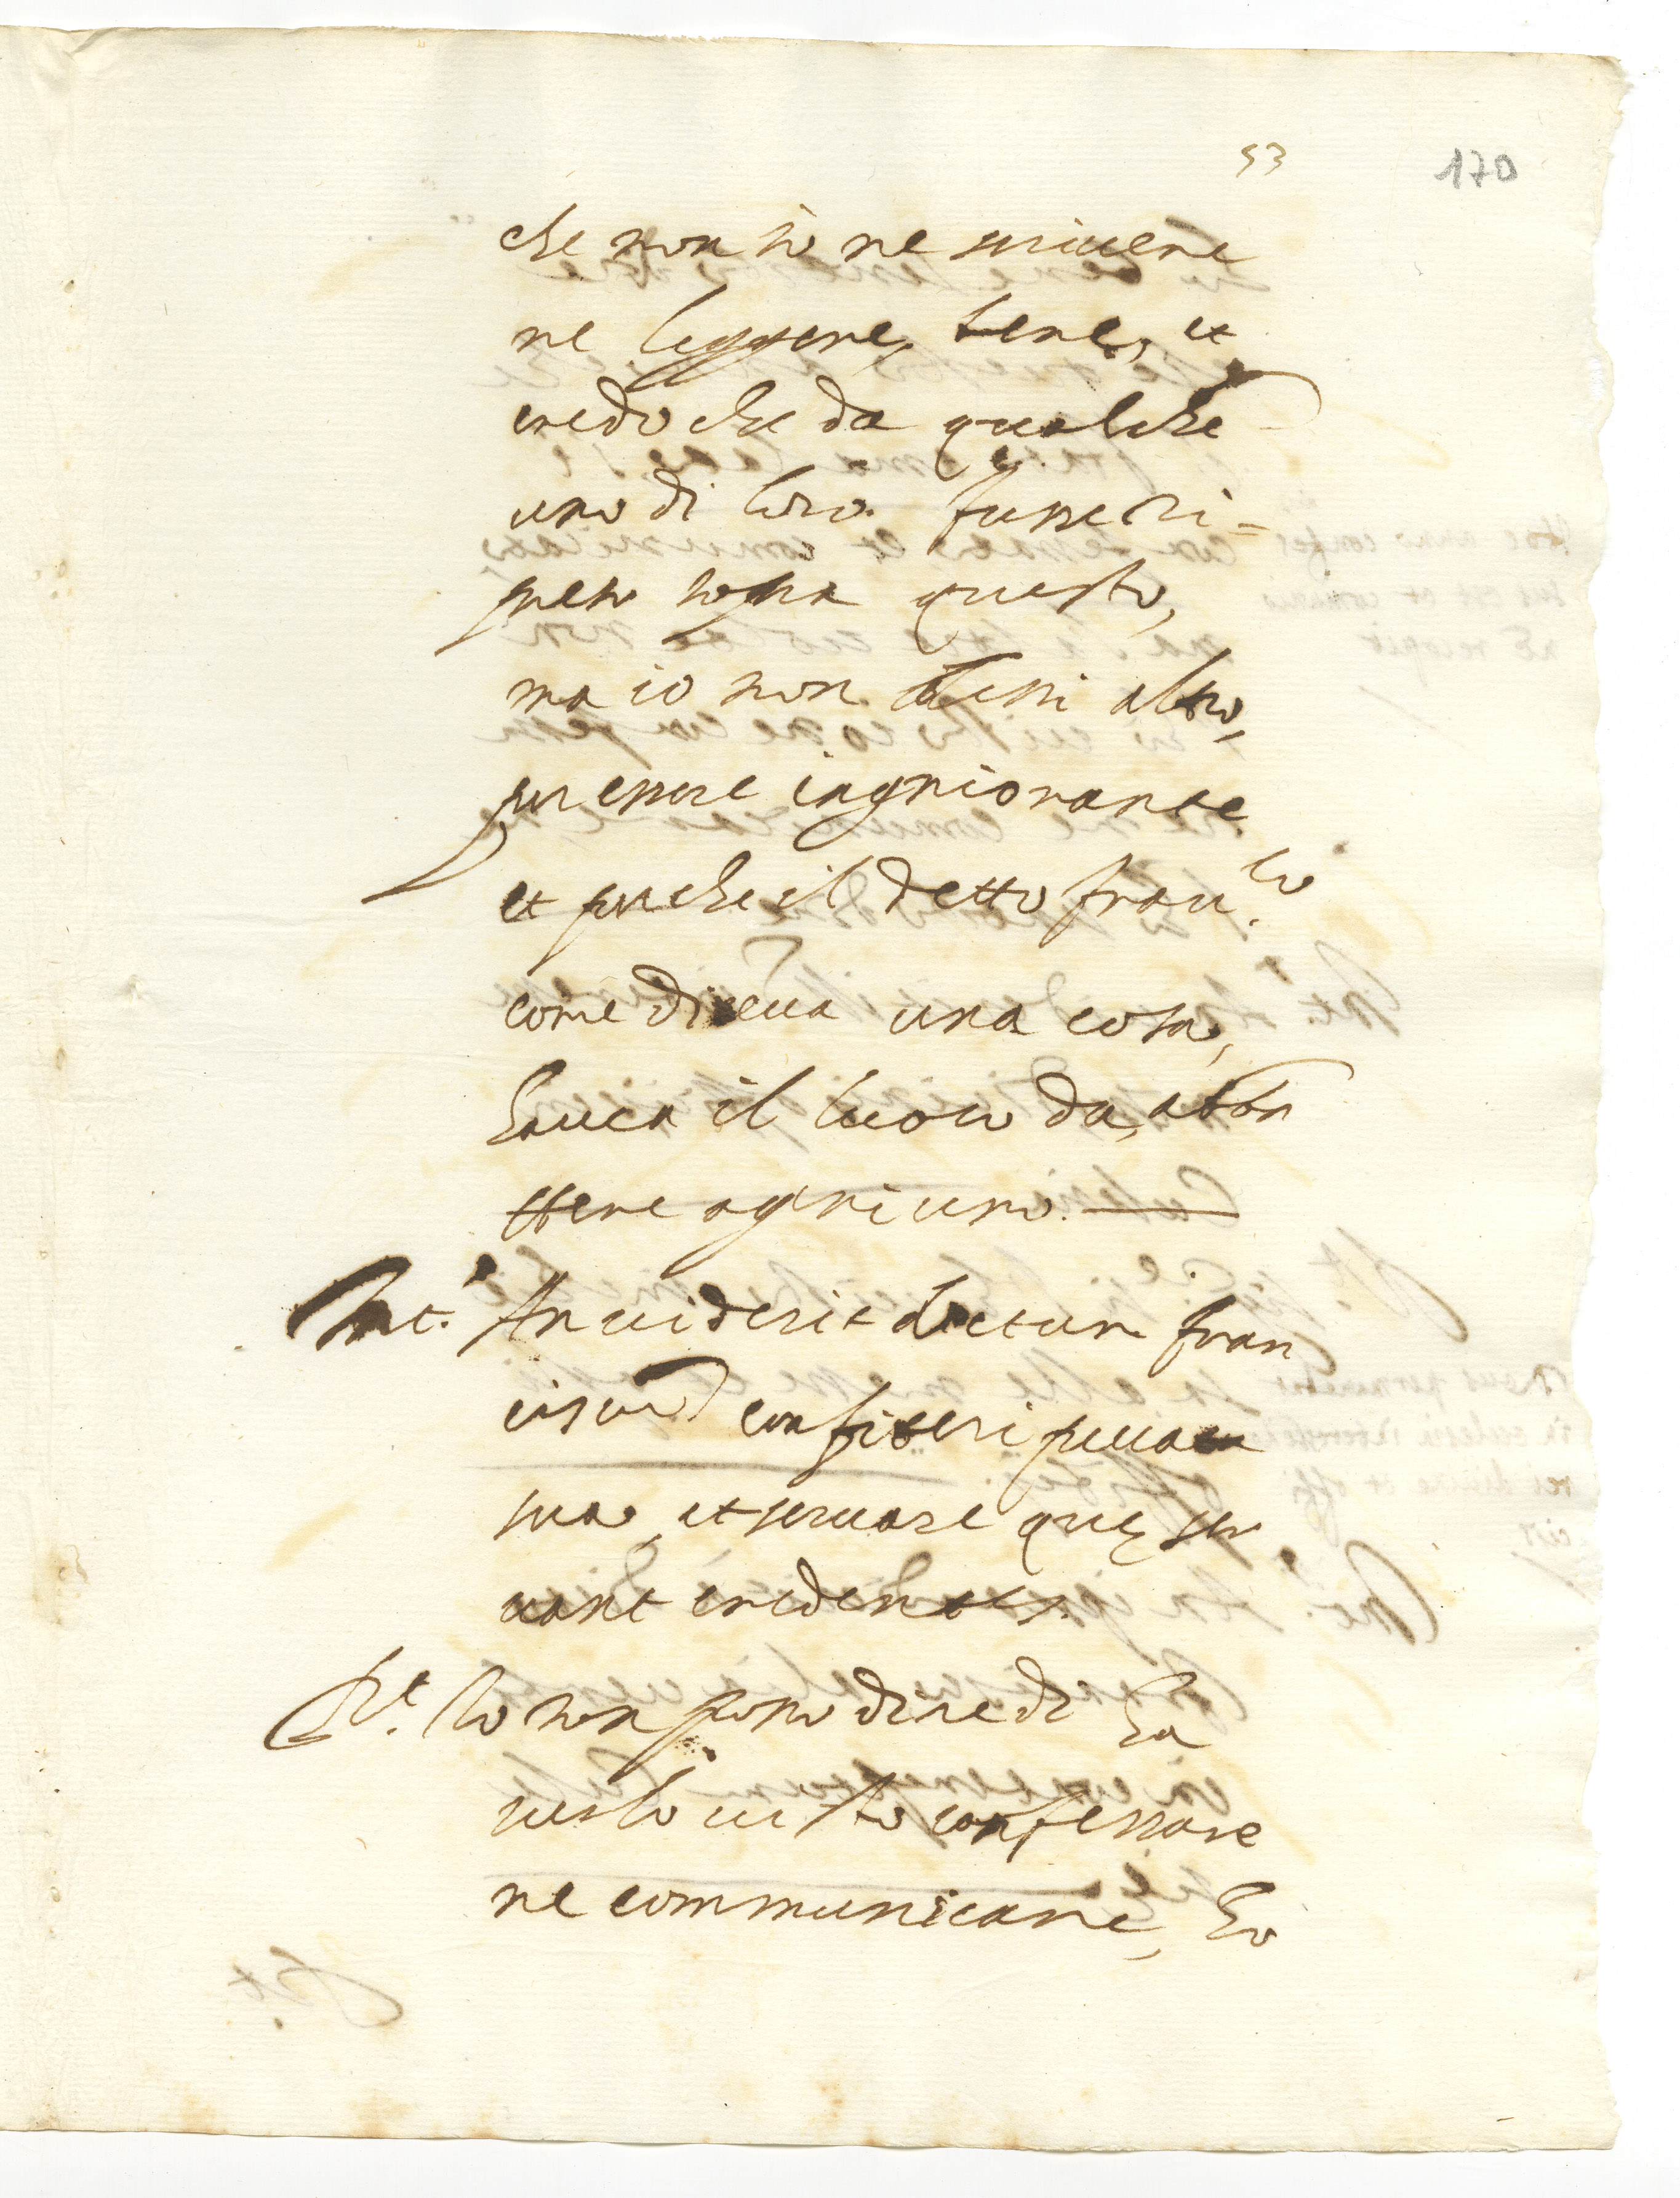 53
170
che non so ne scrivere
ne leggere bene, et
credo che da qualche
uno di loro fusse ri=
preso sopra questo,
ma io non attesi altro,
per essere ingniorante
et perche il detto Fran.co
come diceva una cosa,
haveva il luoco da abba
ttere ogni uno.
Int. An viderit dictum Fran
ciscum confiteri peccata
sua, et servare quę ser
vant credentes.
Rt. Io non posso dire di ha
verlo visto confessare
ne communicare, ho